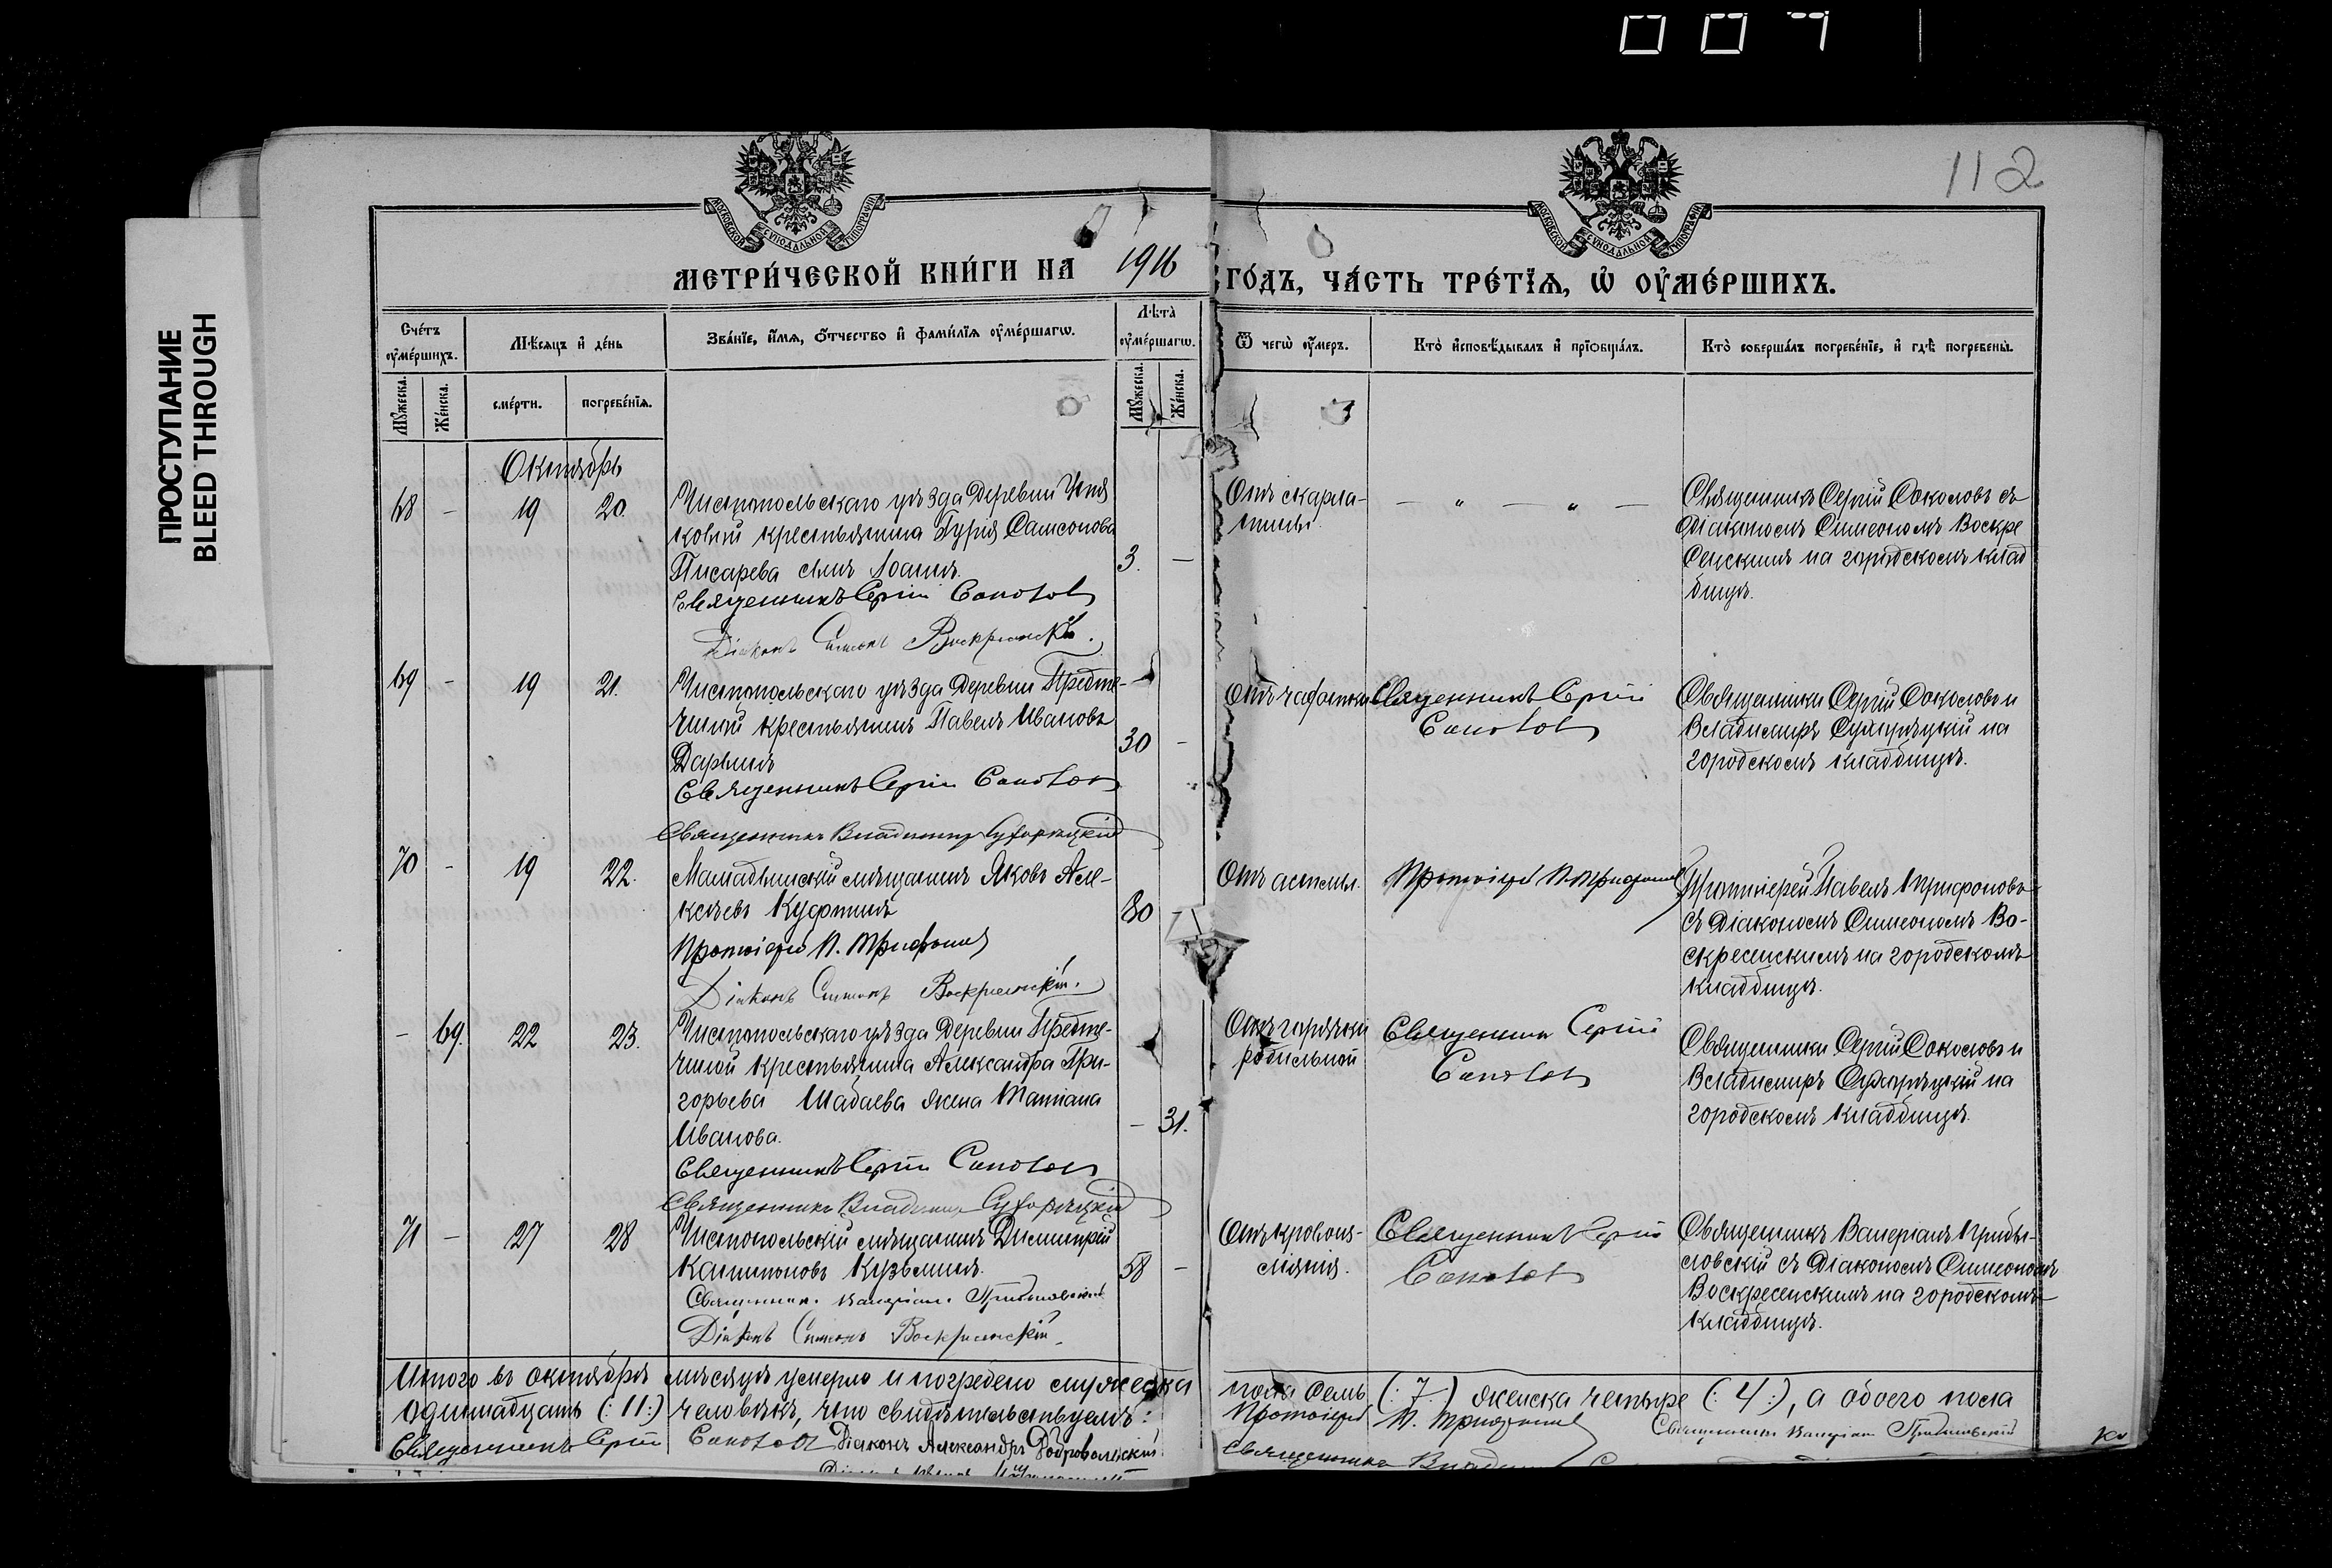 ПРОСТУПАНИЕ
BLEED THROUGH
112
МОСКОВСКОЙ СѴНОДАЛЬНОЙ ТИПОГРАФІИ
МОСКОВСКОЙ СѴНОДАЛЬНОЙ ТИПОГРАФІИ
МЕТРИ́ЧЕСКОЙ КНИ́ГИ НА 1916 ГО́ДЪ, ЧА́СТЬ ТРЕ́ТЇѦ, Ѡ҆ ОУ҆МЕ́РШИХЪ.
Сче́тъ оу҆ме́ршихъ.
Мѣ́сяцъ и҆ де́нь
Зва́нїе, и҆́мѧ, ѻ҆́тчество и҆ фами́лїѧ оу҆ме́ршагѡ.
Лѣ́та оу҆ме́ршагѡ.
Ѿ чегѡ̀ оу҆́меръ.
Кто̀ и҆сповѣ́дывалъ и҆ прїѡбща́лъ.
Кто̀ соверша́лъ погребе́нїе, и҆ гдѣ̀ погребены̀.
Мꙋ́жеска.
Же́нска.
сме́рти.
погребе́нїѧ.
Мꙋ́жеска.
Же́нска.
Октябрь
68 - 19 20.
Чистопольскаго уѣзда деревни
крестьянина Гурія Самсонова
Писарева сынъ Іоаннъ.
3. -
Священникъ Сергій Соколовъ
Діаконъ Симеонъ Воскресенскій.
Отъ скарла-
тины.
— " — " —
Священникъ Сергій Соколовъ съ
діакономъ Симеономъ Воскре
сенскимъ на городскомъ клад
бищѣ.
69 - 19 21.
Чистопольскаго уѣзда деревни Предте-
чиной крестьянинъ Павелъ Ивановъ
Дарьинъ
30 -
Священникъ Сергій Соколовъ
Священникъ Владимиръ Сухорѣцкій
Отъ чахотки
Священникъ Сергій
Соколовъ
Священники Сергій Соколовъ и
Владимиръ Сухорѣцкій на
городскомъ кладбищѣ.
70 - 19 22.
Мамадышскій мѣщанинъ Яковъ Але-
ксѣевъ
80 -
Протоіерей П. Трифоновъ
Діаконъ Симеонъ Воскресенскій.
Отъ астмы.
Протоіерей П. Трифоновъ
Протоіерей Павелъ Трифоновъ
съ діакономъ Симеономъ Во-
скресенскимъ на городскомъ
кладбищѣ.
- 69. 22 23.
Чистопольскаго уѣзда деревни Предте-
чиной крестьянина Александра Гри-
горьева Шадаева жена Татiана
Иванова.
- 31.
Священникъ Сергій Соколовъ
Священникъ Владимиръ Сухорѣцкій
Отъ горячки
родильной
Священникъ Сергій
Соколовъ
Священники Сергій Соколовъ и
Владимиръ Сухорѣцкій на
городскомъ кладбищѣ.
71 - 27 28
Чистопольскій мѣщанинъ Димитрій
Капитоновъ Кузьминъ.
58 -
Священникъ Валеріанъ Прибыловскій
Діаконъ Симеонъ Воскресенскій.
Отъ кровоиз-
ліянія.
Священникъ Сергій
Соколовъ
Священникъ Валеріанъ Прибы-
ловскій съ діакономъ Симеономъ
Воскресенскимъ на городскомъ
кладбищѣ.
Итого въ октябрѣ мѣсяцѣ умерло и погребено мужеска пола семь (:7:) женска четыре (:4:), а обоего пола
одиннадцать (:11:) человѣкъ, что свидѣтельствуемъ: Протоіерей П. Трифоновъ Священникъ Валеріанъ Прибыловскій
Священникъ Сергій Соколовъ Діаконъ Александръ Добровольскій Священникъ